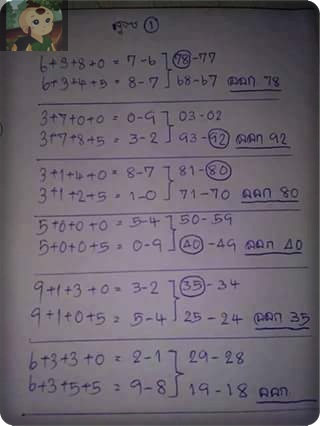 สูตร ①
6+3+8+0 = 7-6 78-77
6+3+4+5 = 8-7 68-67 ออก 78
3+7+0+0 = 0-9 03-02
3+7+8+5 = 3-2 93-92 ออก 92
3+1+4+0 = 8-7 81-80
3+1+2+5 = 1-0 71-70 ออก 80
5+0+0+0 = 5-4 50-59
5+0+0+5 = 0-9 40-49 ออก 40
9+1+3+0 = 3-2 35-34
9+1+0+5 = 5-4 25-24 ออก 35
6+3+3+0 = 2-1 29-28
6+3+5+5 = 9-8 19-18 ออก